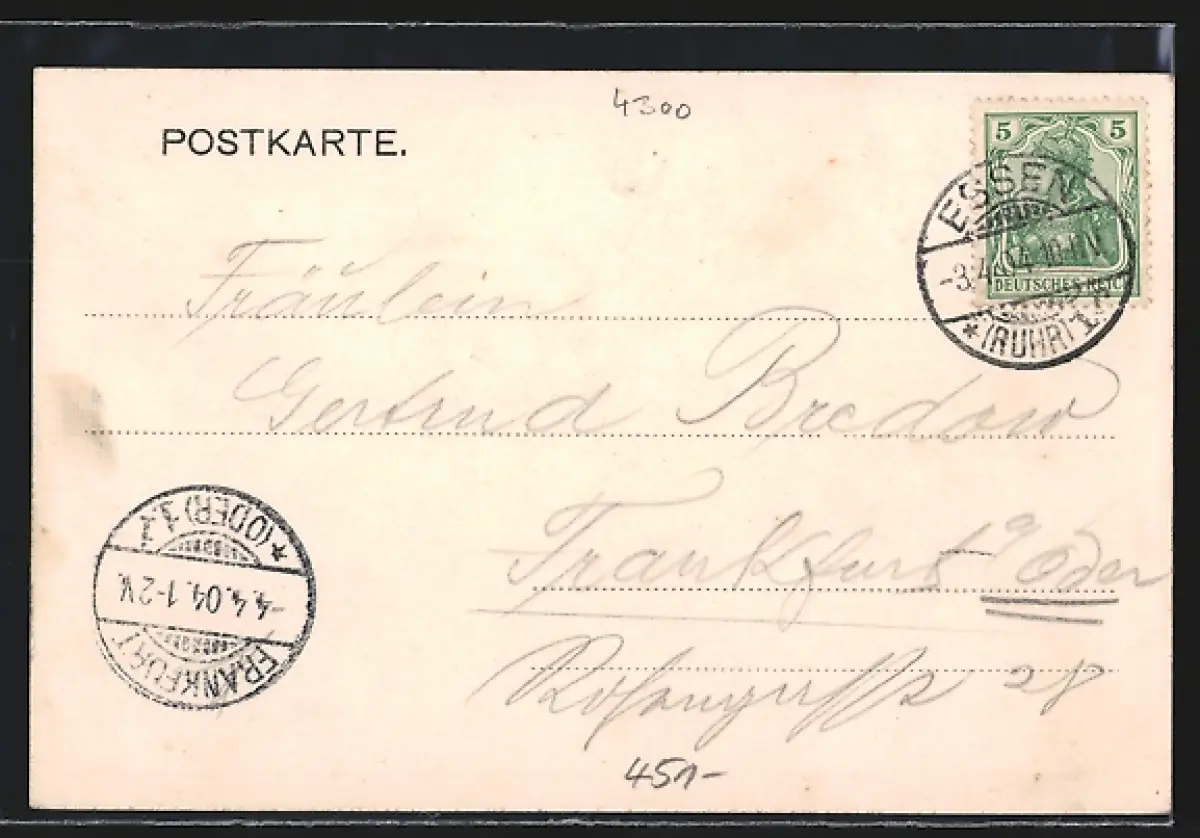 4300
POSTKARTE.
5 5
DEUTSCHES REICH
ESSEN
-3.4.04.10-11V.
*(RUHR)1
Fräulein
Gertrud Bredow
Frankfurt a Oder
Rosengasse 28
*(ODER)1.
-4.4.04.1-2V.
FRANKFURT
45,-